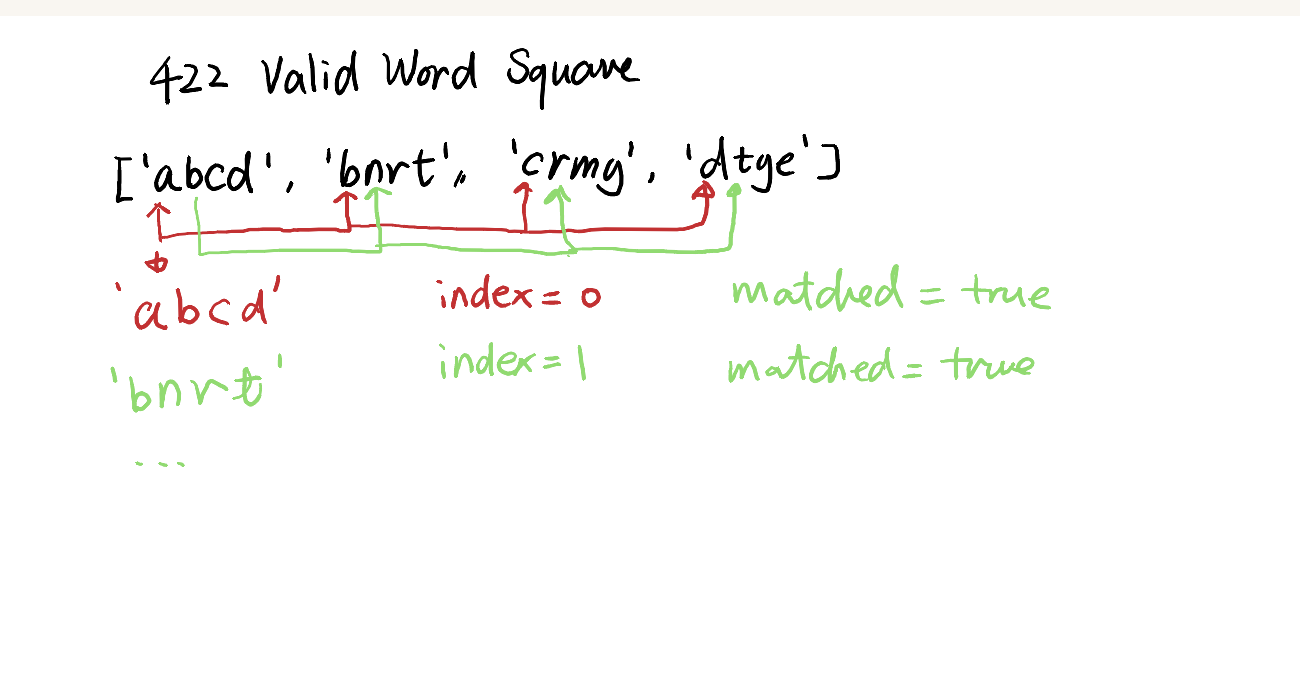 422 Valid Word Square
['abcd', 'bnrt',, 'crmg', 'dtge']
'abcd' index = 0 matched = true
'bnrt' index = 1 matched = true
...